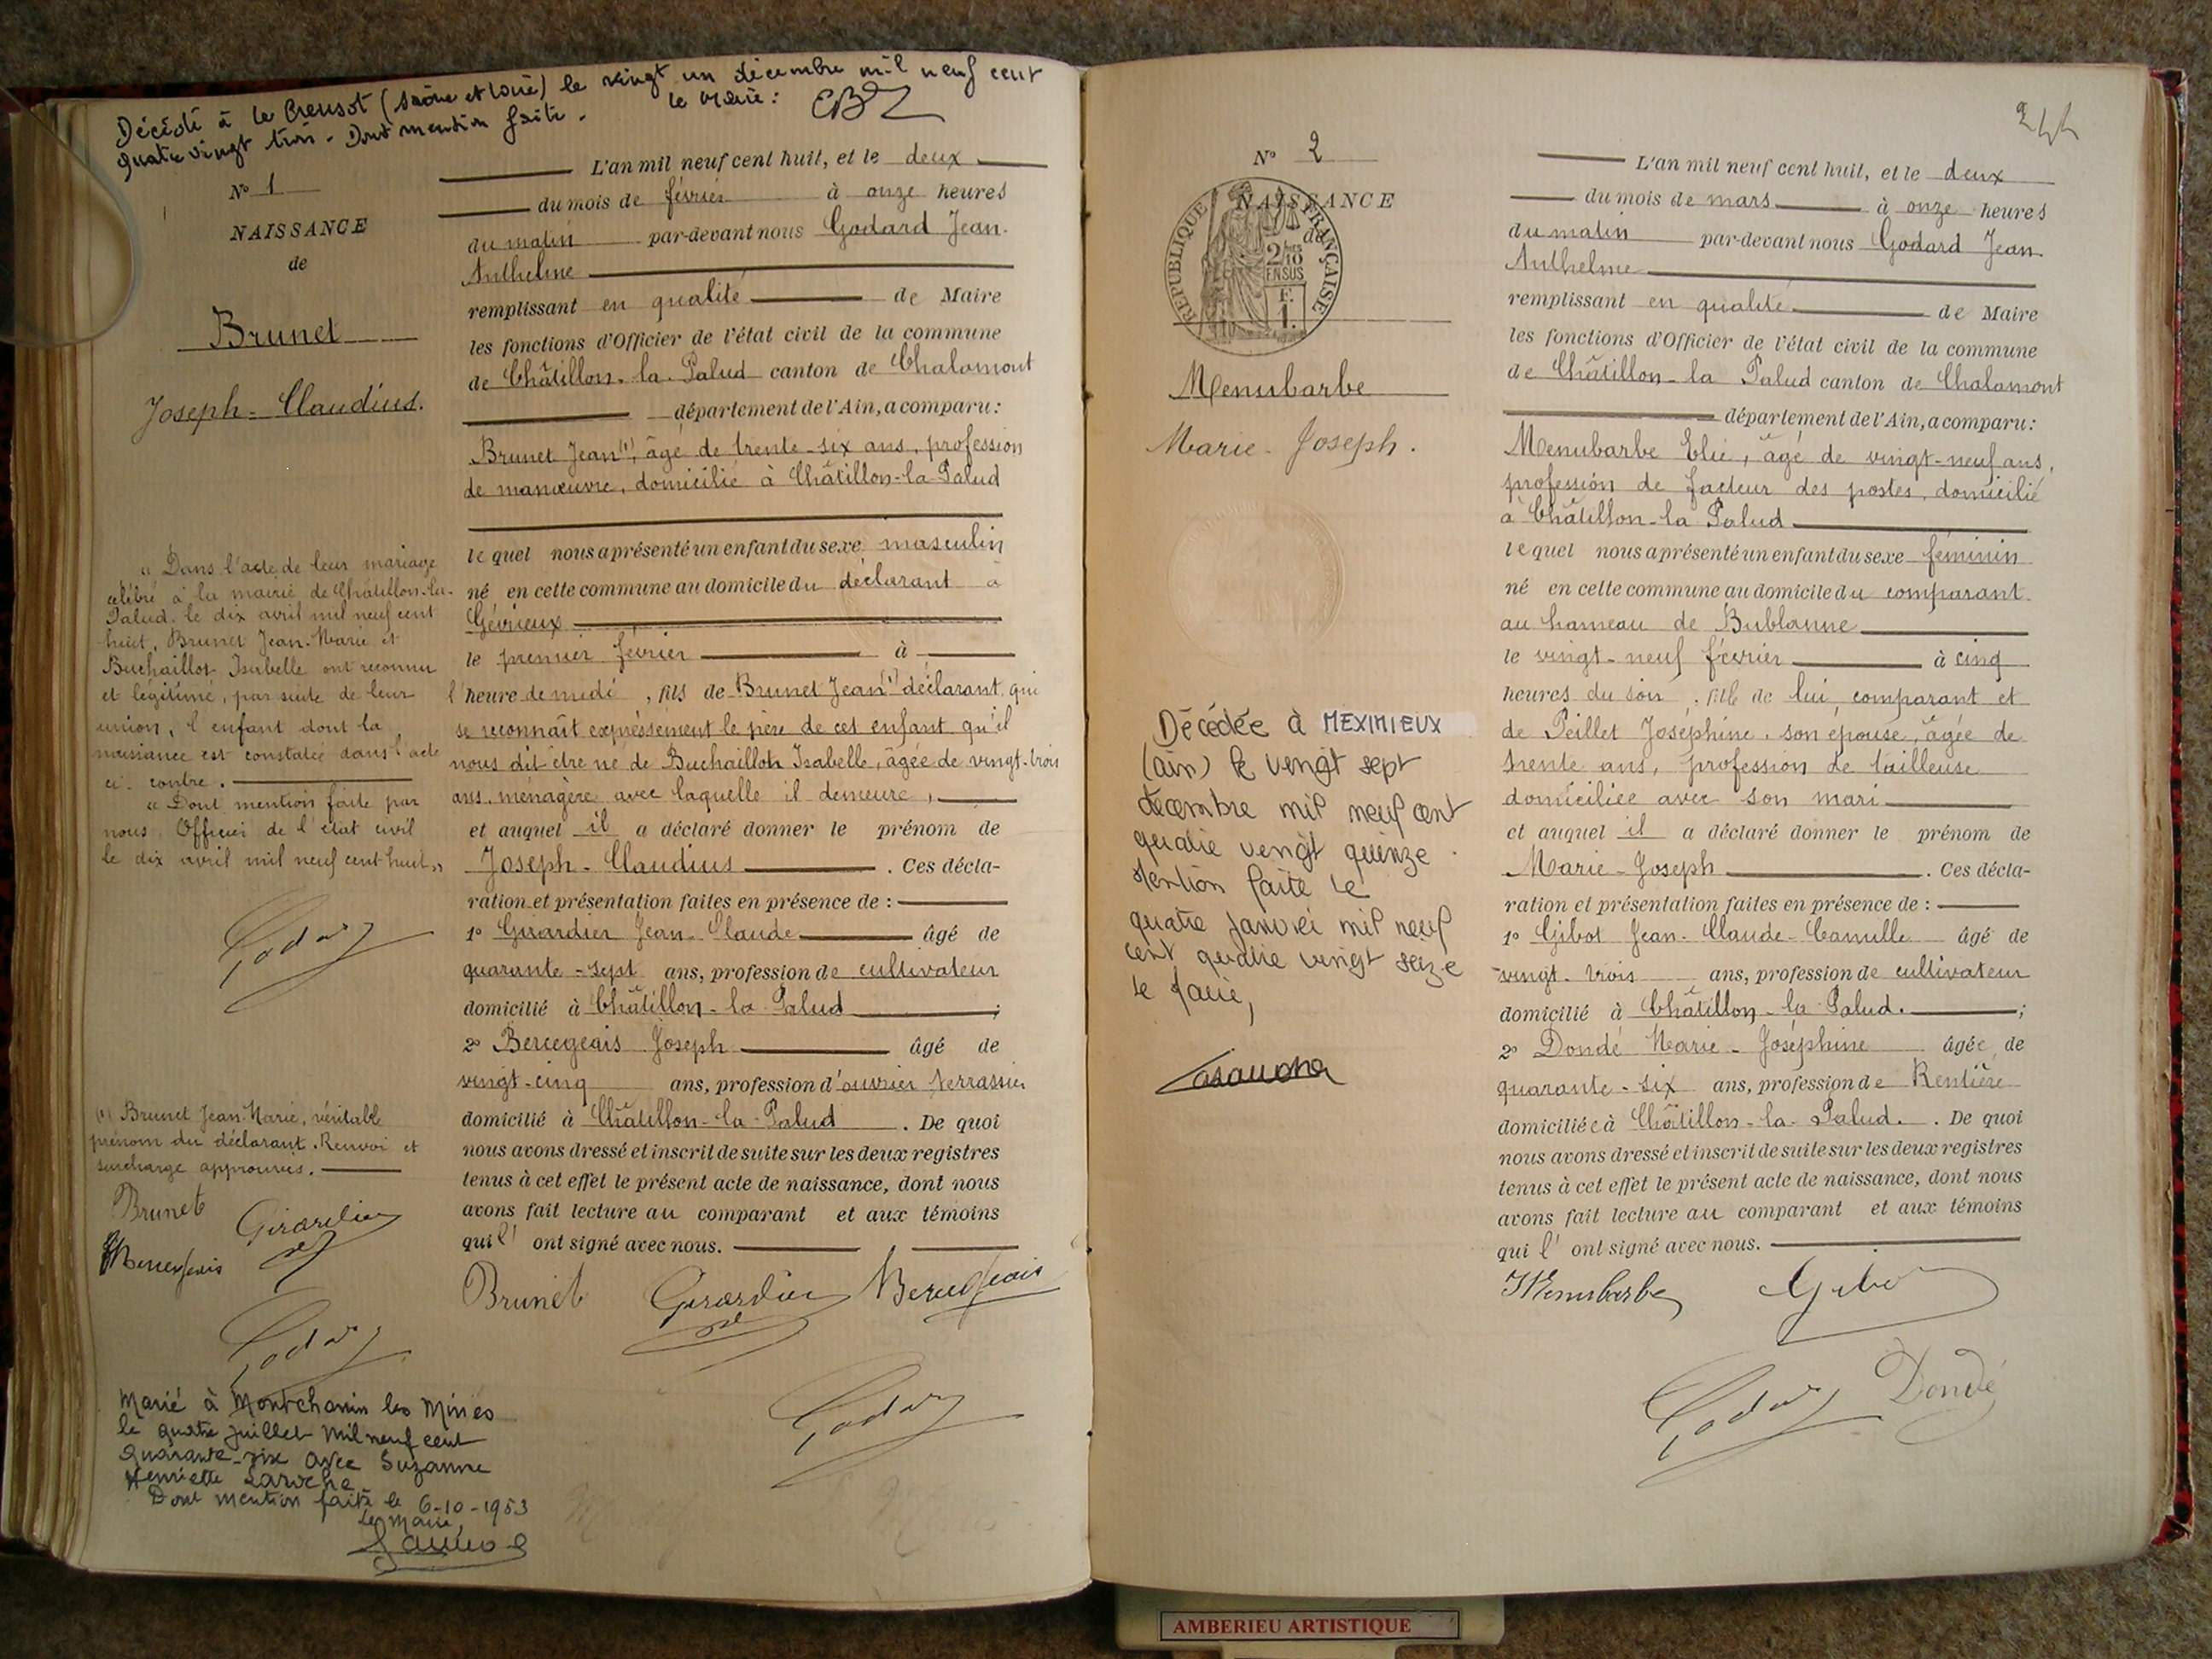 Décédé à Le Creusot (Saône et Loire) le vingt un décembre mil neuf cent
quatre vingt trois - Dont mention faite.
le Maire:
N° 1
NAISSANCE
de
Brunet
Joseph-Claudius.
« Dans l'acte de leur mariage
célébré à la mairie de Châtillon-la-
Palud le dix avril mil neuf cent
huit, Brunet Jean-Marie et
Buchaillot Isabelle ont reconnu
et légitimé, par suite de leur
union, l'enfant dont la
naissance est constatée dans l'acte
ci-contre.
« Dont mention faite par
nous Officier de l'état civil
le dix avril mil neuf cent huit »
Godard
(1) Brunet Jean-Marie, véritable
prénom du déclarant. Renvoi et
surcharge approuvés.
Brunet
Girardier
Bercegeais
Godard
Marié à Montchanin les Mines
le quatre juillet mil neuf cent
quarante-six avec Suzanne
Henriette Laroche
Dont mention faite le 6-10-1953
Le Maire,
L'an mil neuf cent huit, et le deux
du mois de février à onze heures
du matin par-devant nous Godard Jean
Anthelme
remplissant en qualité de Maire
les fonctions d'Officier de l'état civil de la commune
de Châtillon-la-Palud canton de Chalamont
département de l'Ain, a comparu:
Brunet Jean (1), âgé de trente-six ans, profession
de manœuvre, domicilié à Châtillon-la-Palud
lequel nous a présenté un enfant du sexe masculin
né en cette commune au domicile du déclarant à
Gévrieux
le premier février à
l'heure de midi, fils de Brunet Jean (1) déclarant, qui
se reconnaît expressément le père de cet enfant qu'il
nous dit être né de Buchaillot Isabelle, âgée de vingt-trois
ans, ménagère avec laquelle il demeure,
et auquel il a déclaré donner le prénom de
Joseph-Claudius. Ces décla-
ration et présentation faites en présence de :
1° Girardier Jean-Claude âgé de
quarante-sept ans, profession de cultivateur
domicilié à Châtillon-la-Palud ;
2° Bercegeais Joseph âgé de
vingt-cinq ans, profession d'ouvrier terrassier
domicilié à Châtillon-la-Palud. De quoi
nous avons dressé et inscrit de suite sur les deux registres
tenus à cet effet le présent acte de naissance, dont nous
avons fait lecture au comparant et aux témoins
qui l' ont signé avec nous.
Brunet Girardier Bercegeais
Godard
244
N° 2
NAISSANCE
de
REPUBLIQUE FRANÇAISE
2/10
EN SUS
F.
1.
Menubarbe
Marie-Joseph.
Décédée à MEXIMIEUX
(ain) le vingt sept
décembre mil neuf cent
quatre vingt quinze.
Mention faite le
quatre janvier mil neuf
cent quatre vingt seize
Le Maire,
L'an mil neuf cent huit, et le deux
du mois de mars à onze heures
du matin par-devant nous Godard Jean
Anthelme
remplissant en qualité de Maire
les fonctions d'Officier de l'état civil de la commune
de Châtillon-la Palud canton de Chalamont
département de l'Ain, a comparu:
Menubarbe Elie, âgé de vingt-neuf ans,
profession de facteur des postes, domicilié
à Châtillon-la Palud
lequel nous a présenté un enfant du sexe féminin
né en cette commune au domicile du comparant
au hameau de Bublanne
le vingt-neuf février à cinq
heures du soir, fille de lui, comparant et
de Peillet Joséphine, son épouse, âgée de
trente ans, profession de tailleuse
domiciliée avec son mari
et auquel il a déclaré donner le prénom de
Marie-Joseph. Ces décla-
ration et présentation faites en présence de :
1° Gibot Jean-Claude-Camille âgé de
vingt-trois ans, profession de cultivateur
domicilié à Châtillon-la Palud. ;
2° Dondé Marie-Joséphine âgée de
quarante-six ans, profession de Rentière
domiciliée à Châtillon-la-Palud. De quoi
nous avons dressé et inscrit de suite sur les deux registres
tenus à cet effet le présent acte de naissance, dont nous
avons fait lecture au comparant et aux témoins
qui l' ont signé avec nous.
Menubarbe Gibot
Godard Dondé
AMBERIEU ARTISTIQUE